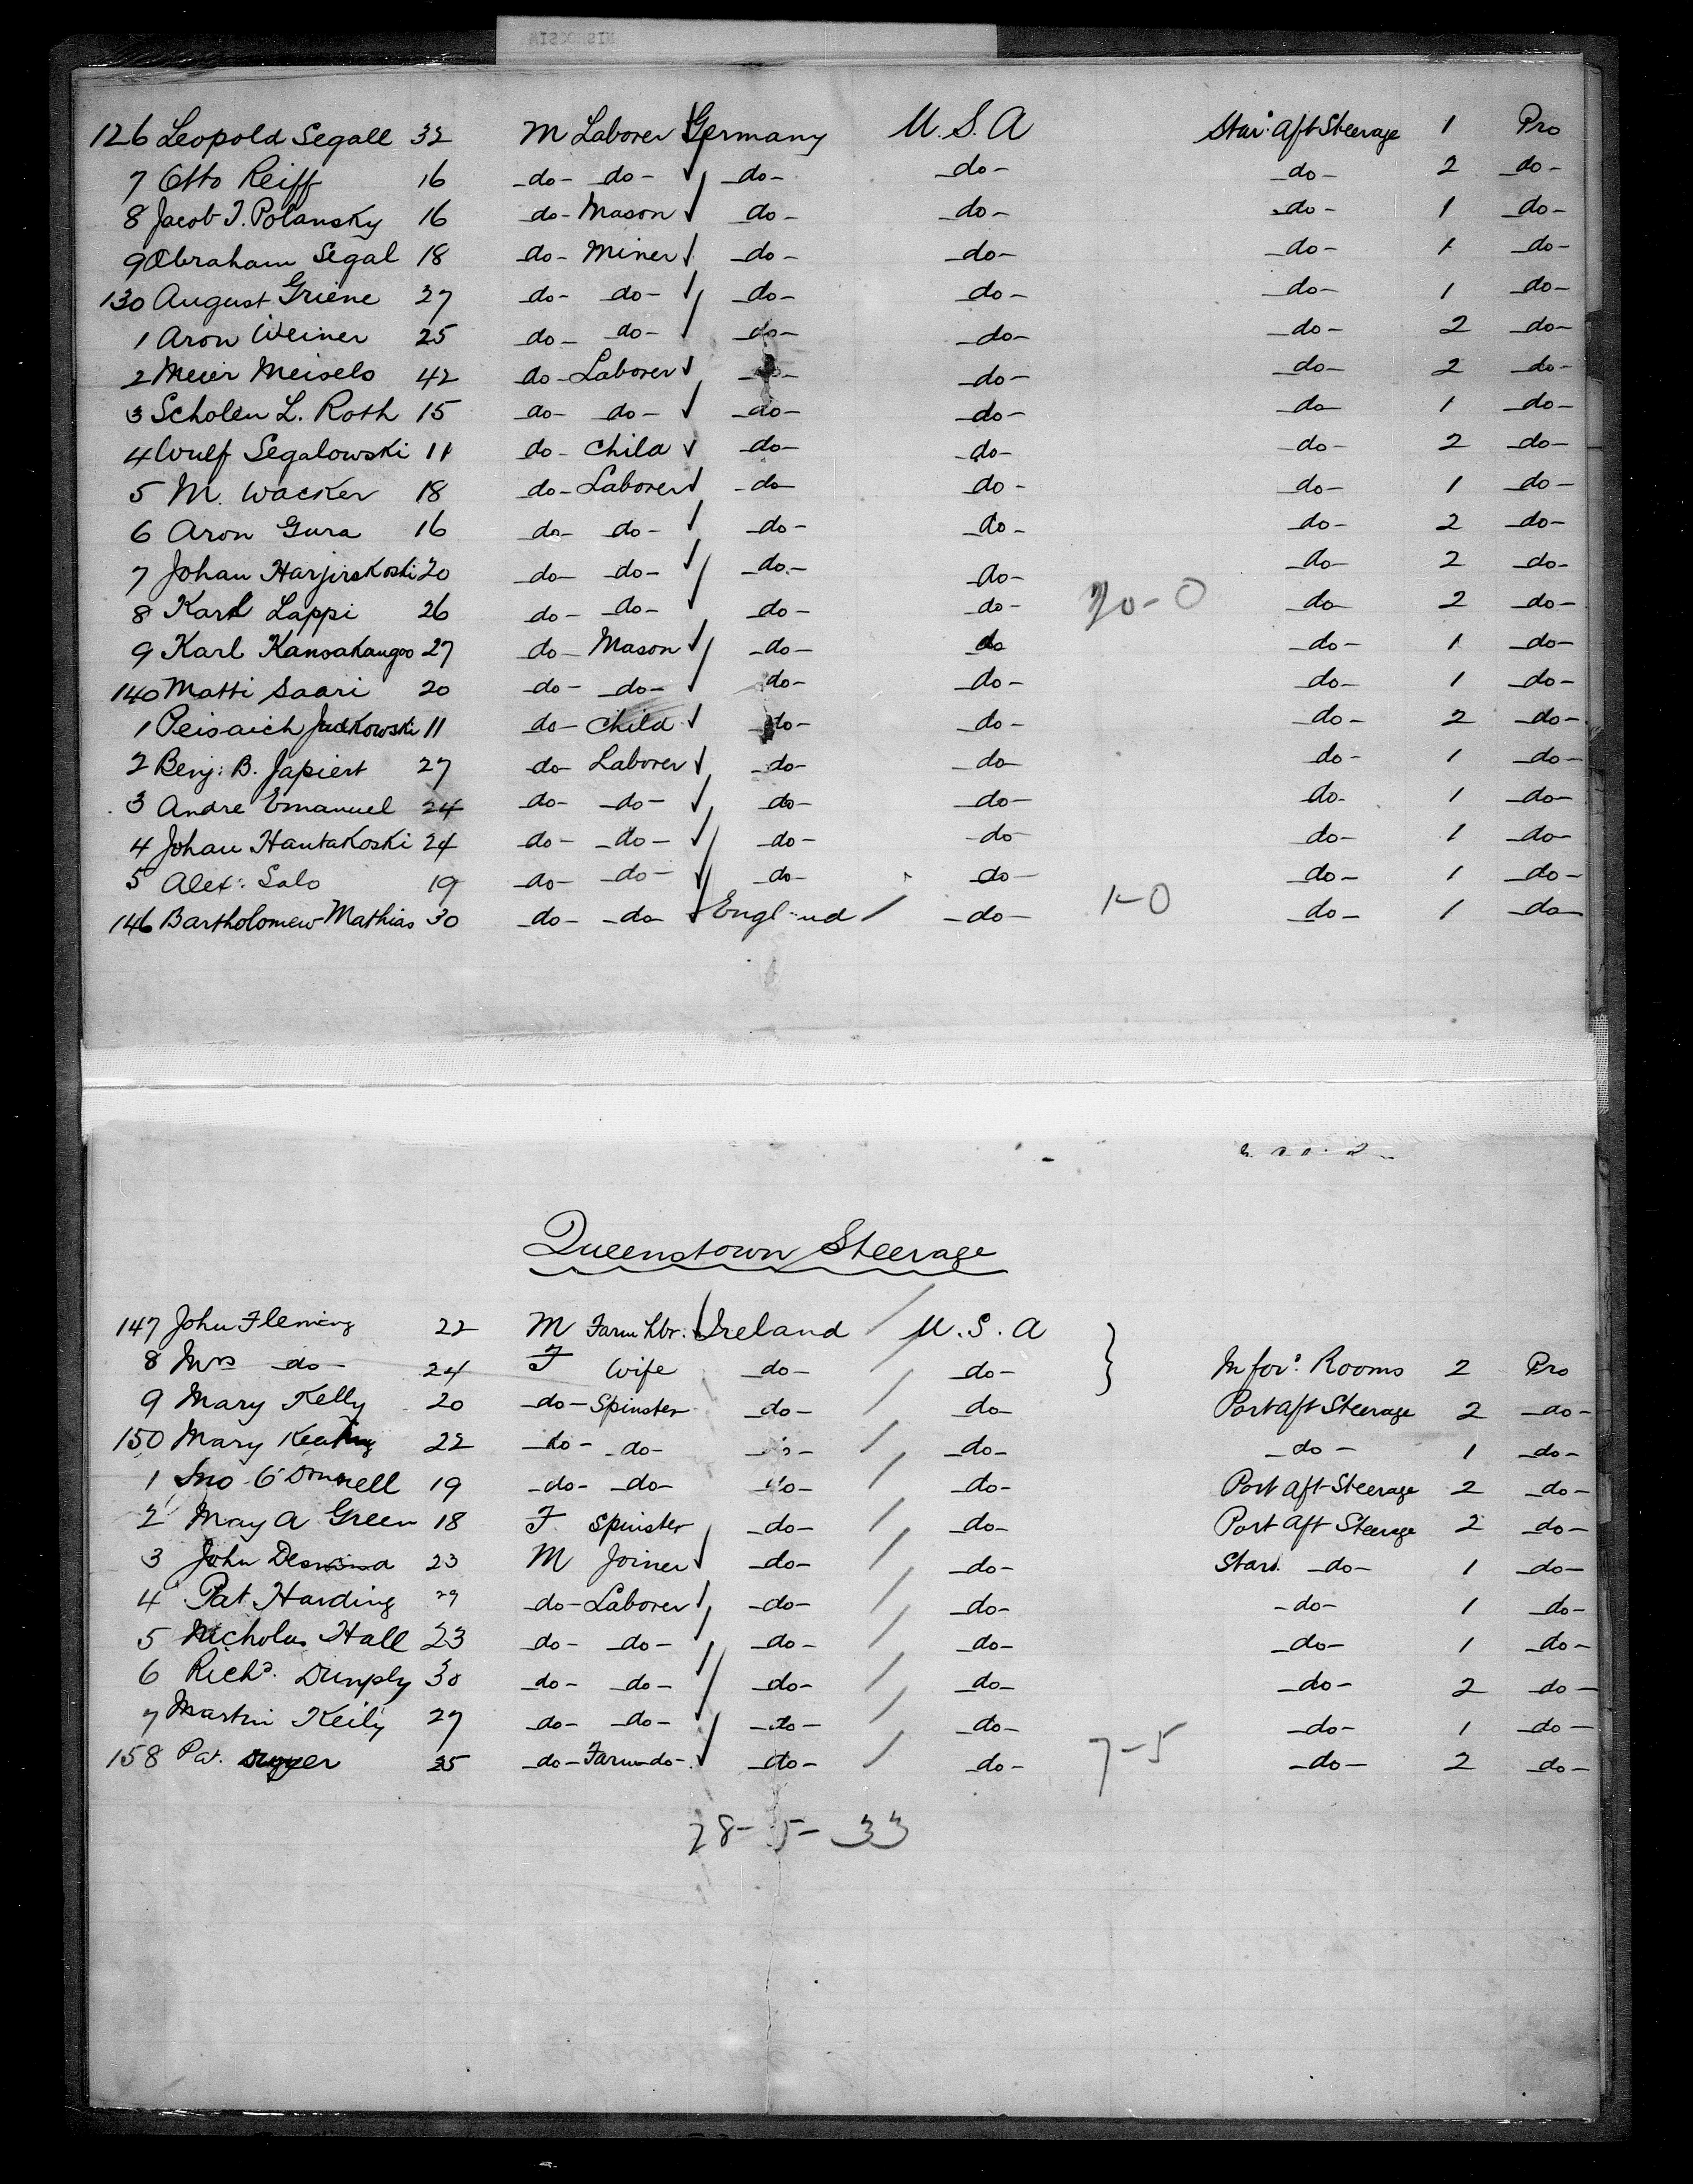 126 Leopold Segall 32 M Laborer Germany U.S.A Star: Aft Steerage 1 Pro
7 Otto Reiff 16 -do- -do- -do- -do- -do- 2 -do-
8 Jacob I. Polansky 16 do- Mason do- -do- -do- 1 -do-
9 Abraham Segal 18 do- Miner do- -do- -do- 1 -do-
130 August Griene 27 do- do- do- do- -do- 1 -do-
1 Aron Weiner 25 do- do- do- -do- -do- 2 -do-
2 Meier Meisels 42 do- Laborer -do- -do- -do- 2 -do-
3 Scholem L. Roth 15 do- do- -do- -do- -do- 1 -do-
4 Wulf Segalowski 11 do- Child do- -do- -do- 2 -do-
5 M. Wacker 18 do- Laborer -do- do- -do- 1 -do-
6 Aron Gura 16 do- do- -do- do- -do- 2 -do-
7 Johan 20 do- do- -do- do- -do- 2 -do-
8 Karl Lappi 26 do- -do- -do- -do- 20-0 -do- 2 -do-
9 Karl 27 do- Mason -do- do -do- 1 -do-
140 Matti Saari 20 -do- -do- do- -do- -do- 1 -do-
1 Judkowski 11 do- Child do- -do- -do- 2 -do-
2 Benj: B. Japiert 27 do- Laborer -do- -do- do- 1 -do-
3 Andre Emanuel 24 do- -do- do- -do- do- 1 -do-
4 Johan Hautakoski 24 do- -do- -do- -do- do- 1 -do-
5 Alex: Salo 19 -do- -do- -do- -do- do- 1 -do-
146 Bartholomew Mathias 30 -do- -do- Engl nd -do- 1-0 -do- 1 -do-
Queenstown Steerage
147 John Fleming 22 M Farm Lbr. Ireland U.S.A
8 Mrs do- 24 F Wife -do- -do- M for: Rooms 2 Pro
9 Mary Kelly 20 -do- Spinster -do- -do- Port aft Steerage 2 -do-
150 Mary Keating 22 -do- -do- -do- -do- 1 -do-
1 Jno O'Donnell 19 -do- -do- do- -do- Port aft Steerage 2 -do-
2 May A Green 18 F. Spinster -do- -do- Port Aft Steerage 2 -do-
3 John Desmond 23 M Joiner -do- -do- Star. -do- 1 -do-
4 Pat Harding 29 -do- Laborer -do- -do- -do- 1 -do-
5 Nicholas Hall 23 -do- -do- -do- -do- -do- 1 -do-
6 Richd. Dunply 30 -do- -do- -do- -do- -do- 2 -do-
7 Martin Keily 27 -do- -do- -do- -do- -do- 1 -do-
158 Pat. Dwyer 25 -do- Farm do- -do- -do- 7-5 -do- 2 -do-
28-5-33